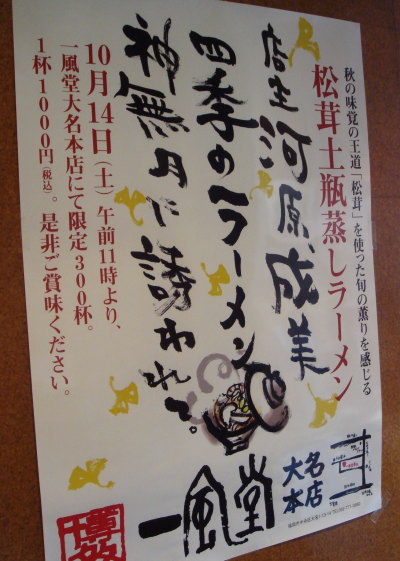 秋の味覚の王道「松茸」を使った旬の薫りを感じる
松茸土瓶蒸しラーメン
店主河原成美
四季のラーメン
神無月に誘われて。
10月14日(土)午前11時より、
一風堂大名本店にて限定300杯。
1杯1000円(税込)。是非ご賞味ください。
一風堂
大名
本店